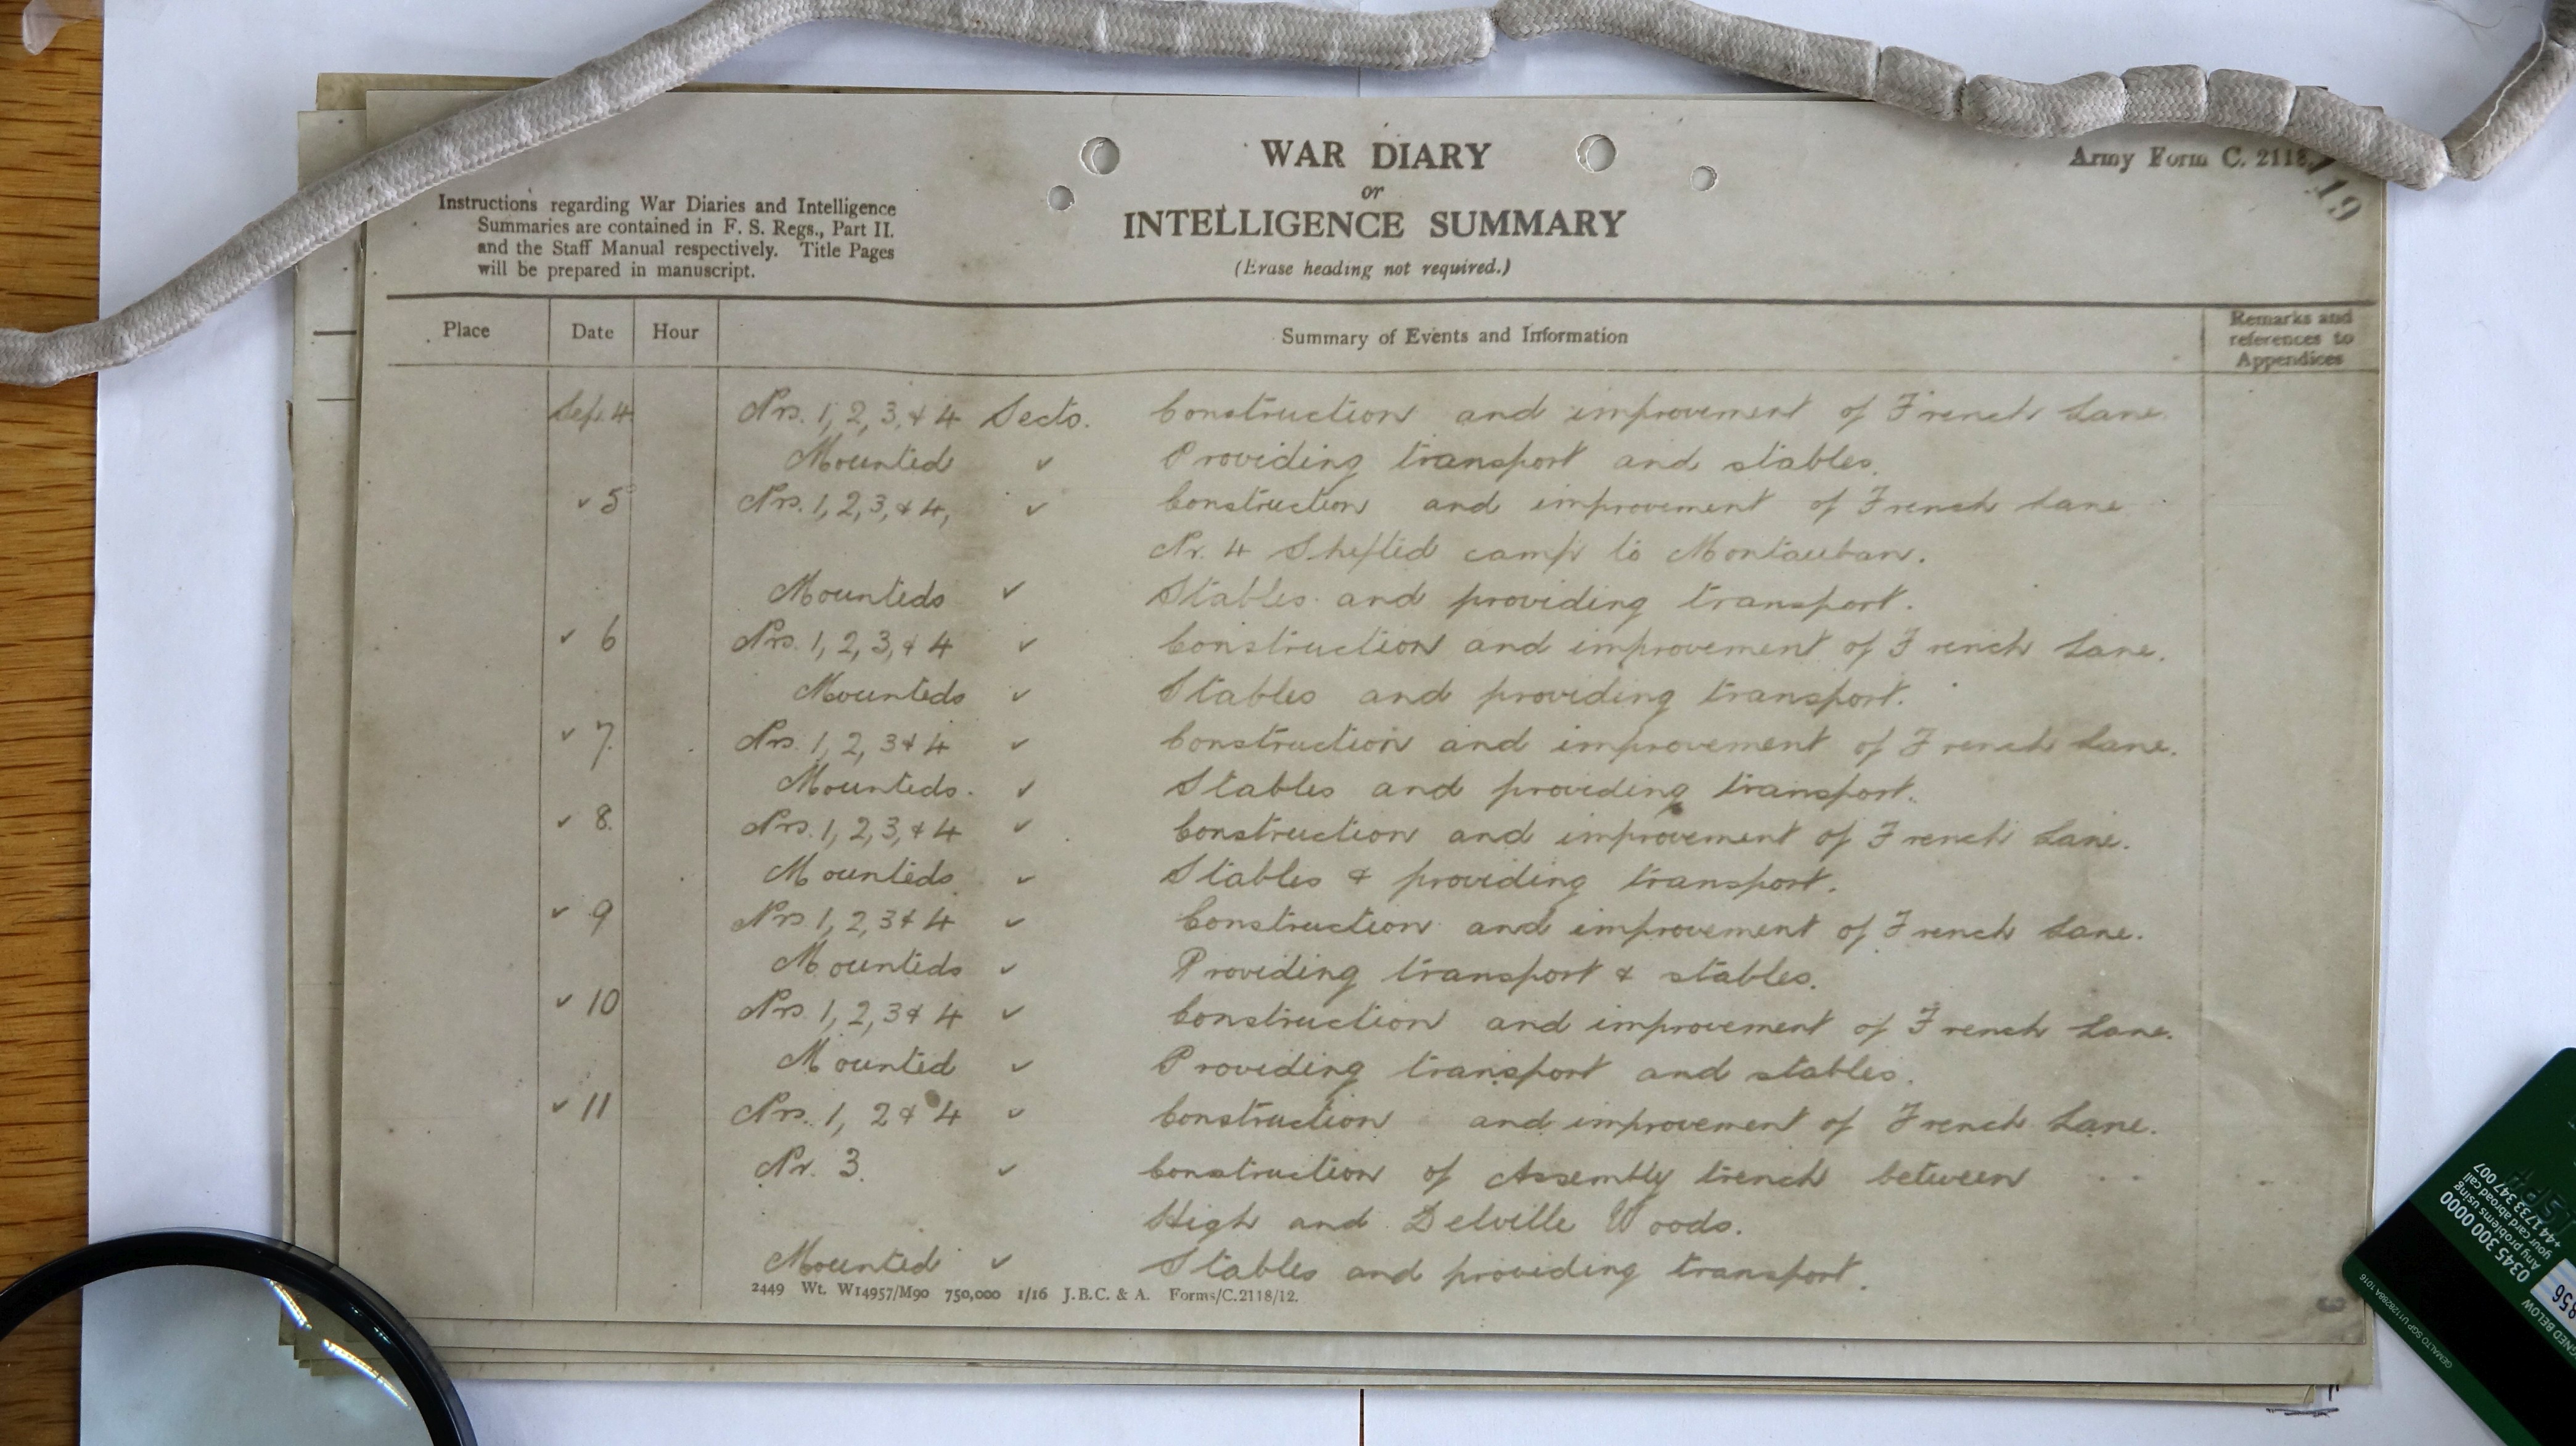 WAR DIARY
or
INTELLIGENCE SUMMARY
(Erase heading not required.)
Army Form C. 2118.
119
Instructions regarding War Diaries and Intelligence
Summaries are contained in F. S. Regs., Part II.
and the Staff Manual respectively. Title Pages
will be prepared in manuscript.
Place Date Hour Summary of Events and Information Remarks and references to Appendices
Sep. 4 Nrs. 1, 2, 3, & 4 Sects. Construction and improvement of French Lane
Mounted ✓ Providing transport and stables.
✓ 5 Nrs. 1, 2, 3, & 4, ✓ Construction and improvement of French Lane
Nr. 4 Shifted camp to Montauban.
Mounteds ✓ Stables and providing transport.
✓ 6 Nrs. 1, 2, 3, & 4 ✓ Construction and improvement of French Lane.
Mounteds ✓ Stables and providing transport.
✓ 7. Nrs. 1, 2, 3 & 4 ✓ Construction and improvement of French Lane.
Mounteds. ✓ Stables and providing transport.
✓ 8. Nrs. 1, 2, 3, & 4 ✓ Construction and improvement of French Lane.
Mounteds ✓ Stables & providing transport.
✓ 9 Nrs 1, 2, 3 & 4 ✓ Construction and improvement of French Lane.
Mounteds ✓ Providing transport & stables.
✓ 10 Nrs 1, 2, 3 & 4 ✓ Construction and improvement of French Lane.
Mounted ✓ Providing transport and stables.
✓ 11 Nrs. 1, 2 & 4 ✓ Construction and improvement of French Lane.
Nr. 3. ✓ Construction of Assembly trench between
High and Delville Woods.
Mounted ✓ Stables and providing transport.
2449 Wt. W14957/M90 750,000 1/16 J.B.C. & A. Forms/C.2118/12.
Any problems using
your card abroad call
+44 1733 347 007
0345 300 0000
NED BELOW
856
GEMALTO SGP U1128298A 1016